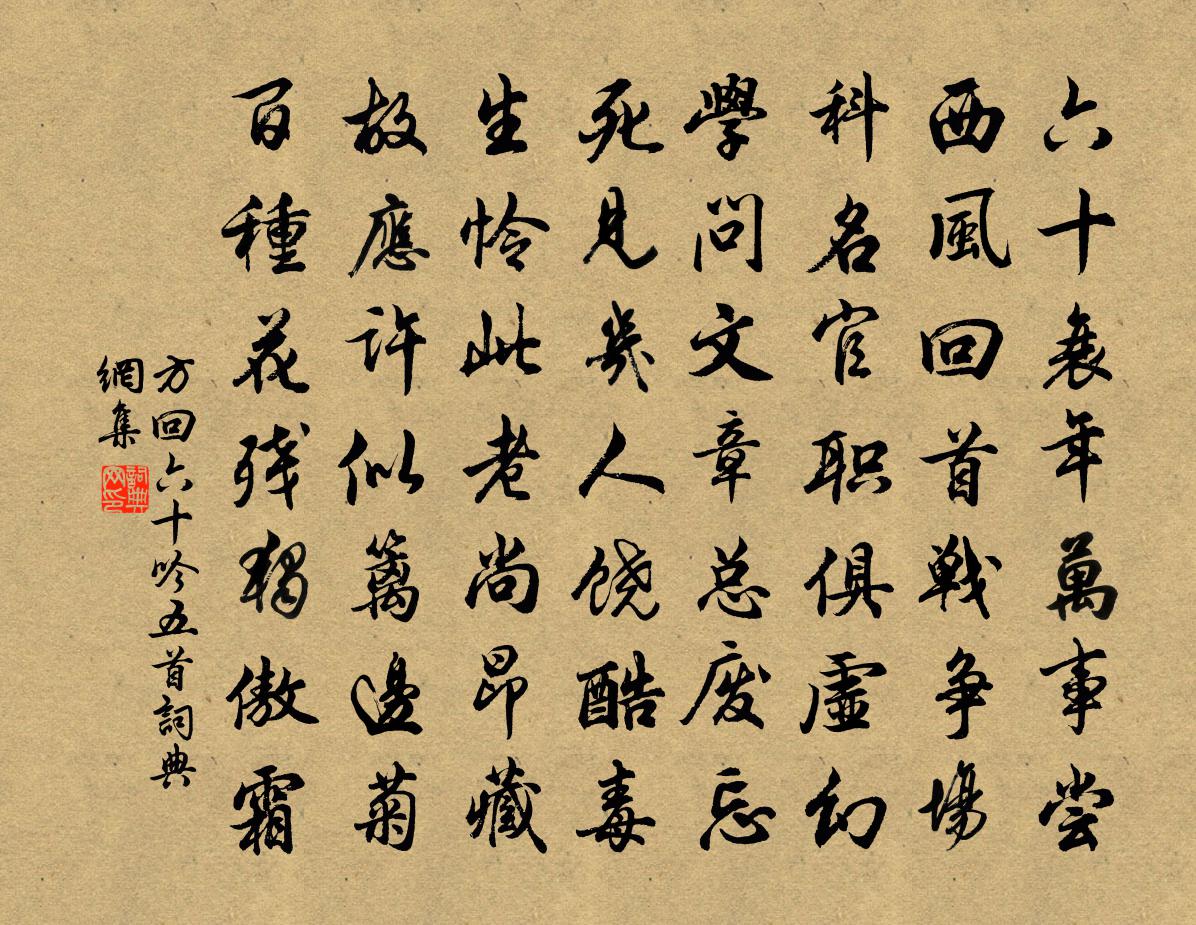 六十衰年萬事尝
西風回首戦争場
科名官职俱虛幻
學問文章总废忘
死見幾人饶酷毒
生怜此老尚昂藏
故應許似籬邊菊
百種花残獨傲霜
方回六十吟五首詞典
網集
詞典
网印